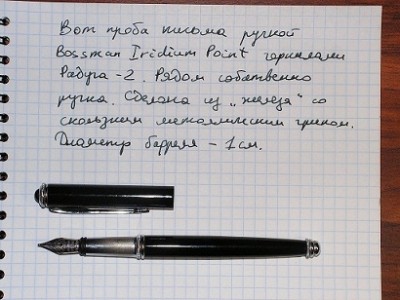 Вот проба письма ручкой
Bossman Iridium Point чернилами
Радуга-2. Рядом собственно
ручка. Сделана из „железа" со
скользким металлическим грипом.
Диаметр барреля - 1 см.